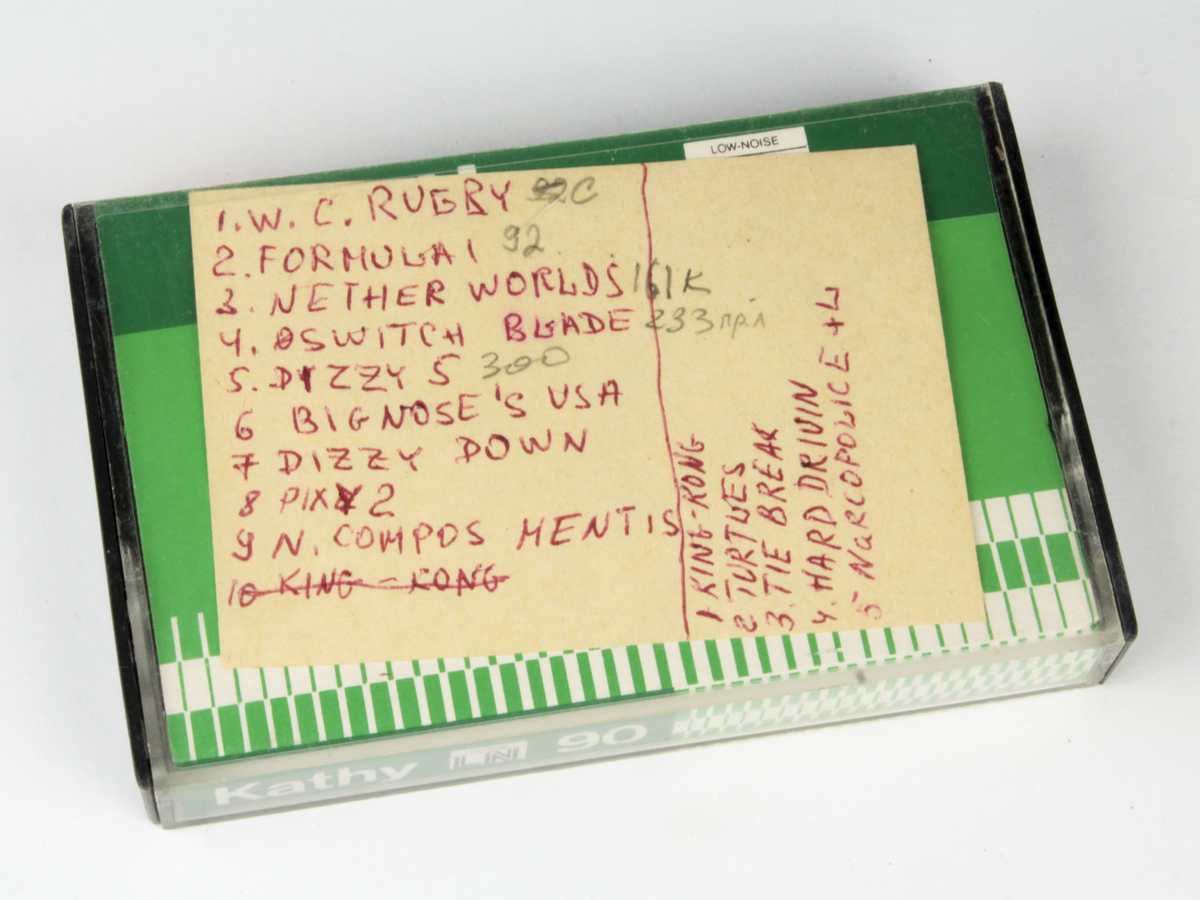 LOW-NOISE
1. W. C. RUGBY
2. FORMULA 1 92
3. NETHER WORLDS 161K
4. SWITCH BLADE 233
5. DIZZY 5 300
6 BIGNOSE'S USA
7 DIZZY DOWN
8 PIXY 2
9 N. COMPOS MENTIS
10 KING-KONG
1 KING-KONG
2 TURTLES
3. TIE BREAK
4. HARD DRIVIN
5 NARCOPOLICE + L
Kathy LN 90